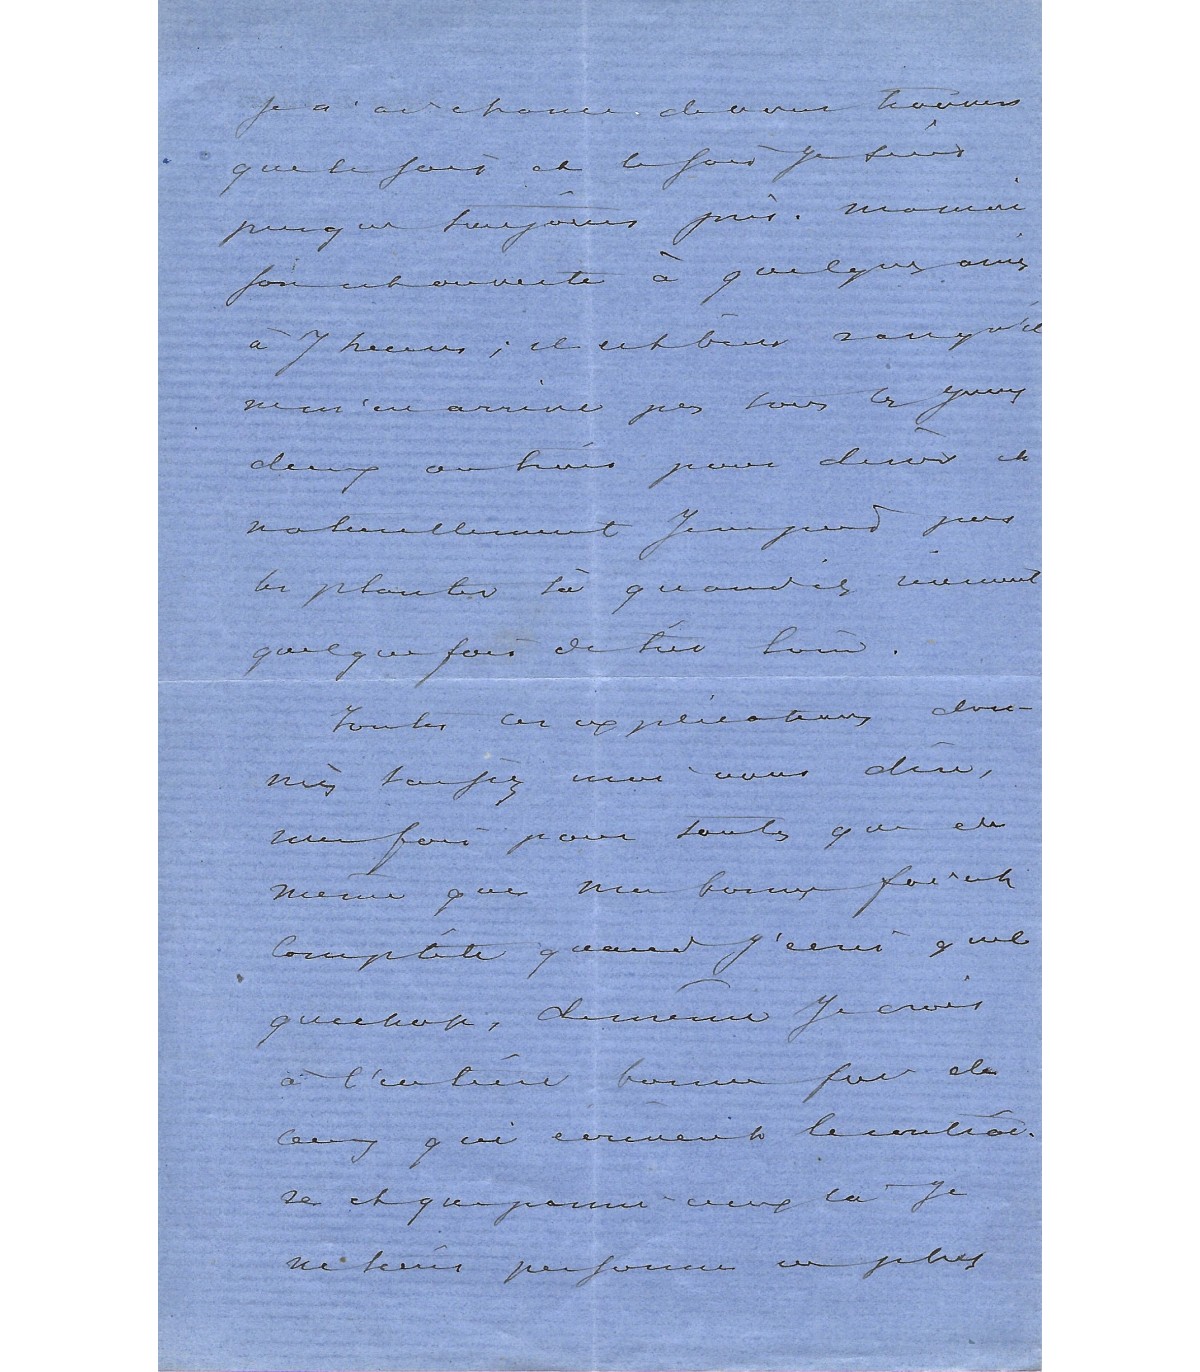 Je n'ai chance de vous trouver
que le soir et le soir je suis
presque toujours pris. ma
est ouverte à quelques amis
à 7 heures ; il est bien rare qu'il
ne m'en arrive pas tous les jours
deux ou trois pour dîner et
naturellement Je ne puis pas
les planter là quand ils viennent
quelque fois de très loin.
Toutes ces explications don-
nées laissez moi vous dire,
une fois pour toutes que de
même que ma bonne foi est
complète quand J'écris quel
que chose, de même Je crois
à l'entière bonne foi de
ceux qui écrivent le contrai-
re et que parmi ceux là Je
ne tiens personne en plus